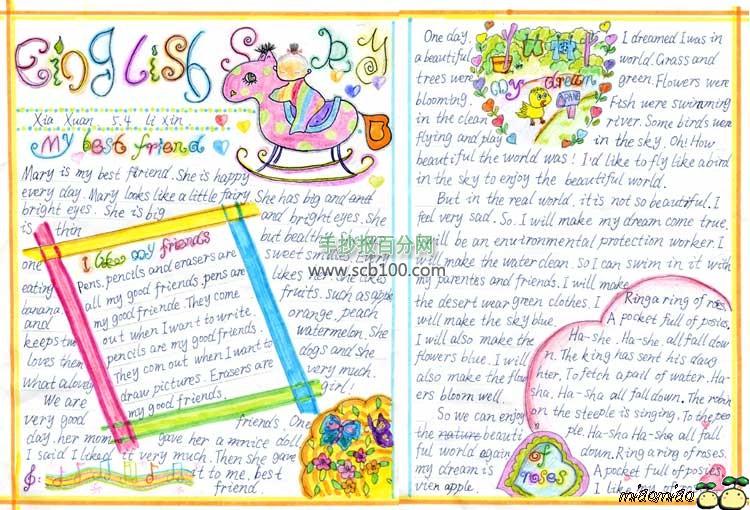 English Story
Xia Xuan 5.4 Li xin
My best friend
Mary is my best friend. She is happy
every day. Mary looks like a little fairy. She has big and and
bright eyes. She is big and bright eyes. She
is thin but healthy
sweet smiles. Every
one likes her. She likes
eating fruits. such as apple
banana. orange, peach
and watermelon. She
keeps two dogs and she
loves them very much.
what a lovely girl!
We are friends. One
very good
day. her mom gave her a mnice doll
I said I liked it very much. Then she gave
it to me. best
friend.
I like my friends
Pens, pencils and erasers are
all my good friends. pens are
my good friende. They come
out when I want to write.
pencils are my good friends.
They com out when I want to
draw pictures. Erasers are
my good friends.
手抄报百分网
www.scb100.com
One day, I dreamed I was in
a beautiful world. Grass and
trees were green. Flowers were
blooming. Fish were swimming
in the clean river. Some birds were
flying and play in the sky. Oh! How
beautiful the world was! I'd like to fly like a bird
in the sky to enjoy the beautiful world.
My dream
But in the real world, it is not so beautiful. I
feel very sad. So. I will make my dream come true.
I will be an environmental protection worker. I
will make the water clean. So I can swim in it with
my parentes and friends. I will make
the desert wear green clothes. I
will make the sky blue.
I will also make the
flowers blue. I will
also make the flow
ers bloom well.
So we can enjoy
the nature beauti
ful world again
my dream is
vien apple.
Ring a ring of roses.
A pocket full of posies.
Ha-she. Ha-she. all fall dow
n. The king has sent his daug
hter. To fetch a pail of water. Ha-
sha. Ha-sha all fall down. The robin
on the steeple is singing. To the peo
ple. Ha-sha Ha-sha all fall
down. Ring a ring of roses.
A pocket full of posies
I like my of roses
of
roses
miaomiao